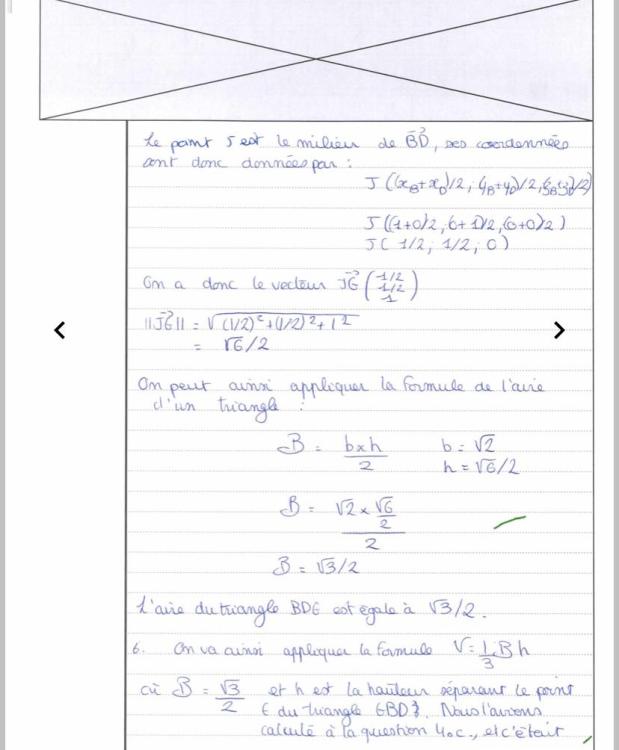 Le point J est le milieu de BD, ses coordonnées
sont donc données par :
J ((xB+xD)/2 ; (yB+yD)/2 ; (zB+zD)/2)
J((1+0)/2 ; 0+1)/2 ; (0+0)/2)
J( 1/2 ; 1/2 ; 0)
On a donc le vecteur JG (1/2 1/2 1)
||JG|| = √(1/2)²+(1/2)²+1²
= √6/2
On peut ainsi appliquer la formule de l'aire
d'un triangle :
B = b×h/2 b = √2
h = √6/2
B = √2 × √6/2 / 2
B = √3/2
L'aire du triangle BDG est égale à √3/2.
6. On va ainsi appliquer la formule V = 1/3 B h
où B = √3/2 et h est la hauteur séparant le point
E du triangle GBD. Nous l'avions
calculé à la question 4.c., et c'était